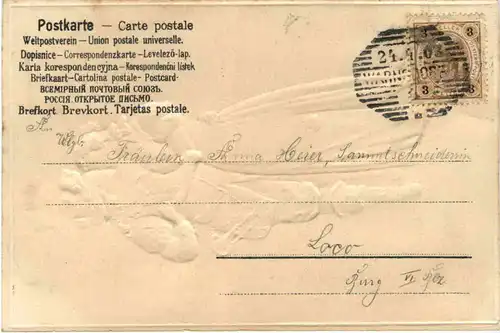 Postkarte – Carte postale
Weltpostverein – Union postale universelle.
Dopisnice - Correspondenzkarte - Levelező-lap.
Karta korespondencyjna - Korespondenční lístek
Briefkaart - Cartolina postale - Postcard-
ВСЕМІРНЫЙ ПОЧТОВЫЙ СОЮЗЪ.
РОССІЯ. ОТКРЫТОЕ ПИСЬМО.
Brefkort. Brevkort. Tarjetas postale.
3 3
3 3
Fräulein Anna Heier, Sammtschneiderin
Loco